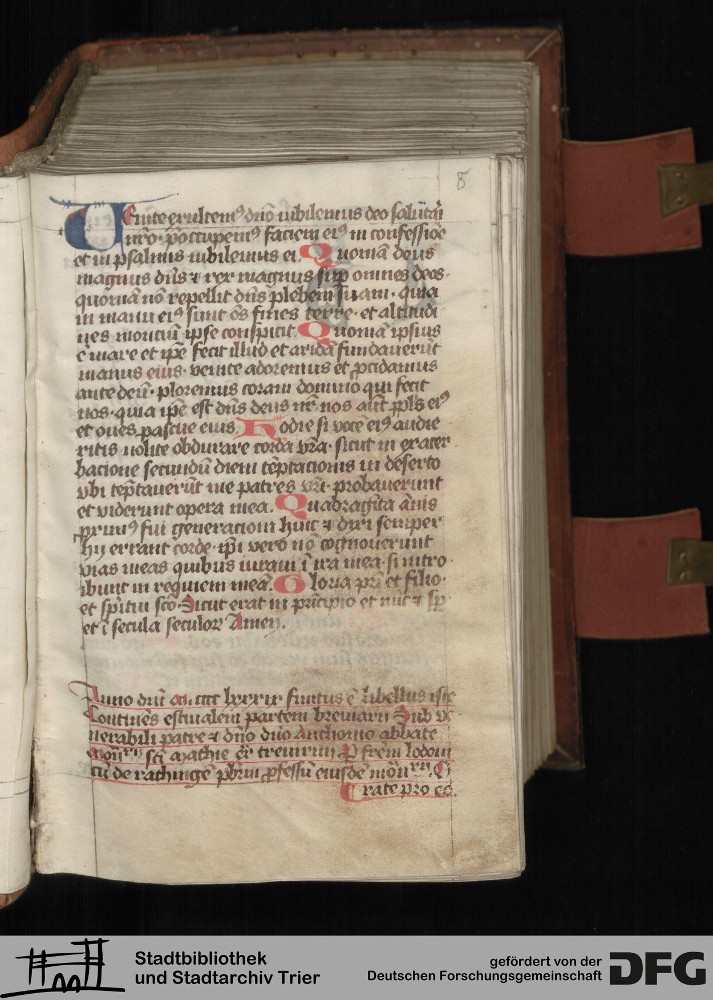 8
Uenite exultem⁹ dn̄o iubilemus deo salutari
nr̄o · p̄occupem⁹ faciem ei⁹ in confessiōe
et in psalmis iubilemus ei. Quoniam deus
magnus dn̄s ⁊ rex magnus sup omnes deos ·
quoniā nō repellit dn̄s plebem suam · quia
in manu ei⁹ sunt oēs fines terre · et altitudi
nes montiū ip̄se conspicit. Quoniā ipsius
ē mare et ip̄e fecit illud et aridā fundauerūt
manus eius · venite adoremus et p̄cidamus
ante deū · ploremus coram domino qui fecit
nos · quia ip̄e est dn̄s deus nr̄ nos aūt ppl̄s ei⁹
et oues pascue eius. Hodie si voce ei⁹ audie
ritis nolite obdurare corda vr̄a · sicut in exacer
bacione secundū diem tēptacionis in deserto
vbi tēptauerūt me patres vr̄i · probauerunt
et viderunt opera mea. Quadragīta ānis
proxim⁹ fui generacioni huic ⁊ dixi semper
hij errant corde · ip̄i vero nō cognouerunt
vias meas quibus iuraui ī ira mea · si intro
ibunt in requiem mea. Gloria pr̄i et filio ·
et sp̄itui scō · Sicut erat in prīcipio et nūc ⁊ sp̄
et ī secula seculoꝝ Amen.
Anno dn̄i m. cccc lxxxix finitus ē libellus iste
Continēs estiualem partem breuiarii Sub ve
nerabili patre ⁊ dn̄o dn̄o Anthonio abbate
scī mathie
frem lodoui
cū de rathingē pb̄rm ꝓfessū eiusdē
Orate pro eo.
Stadtbibliothek
und Stadtarchiv Trier
gefördert von der
Deutschen Forschungsgemeinschaft
DFG